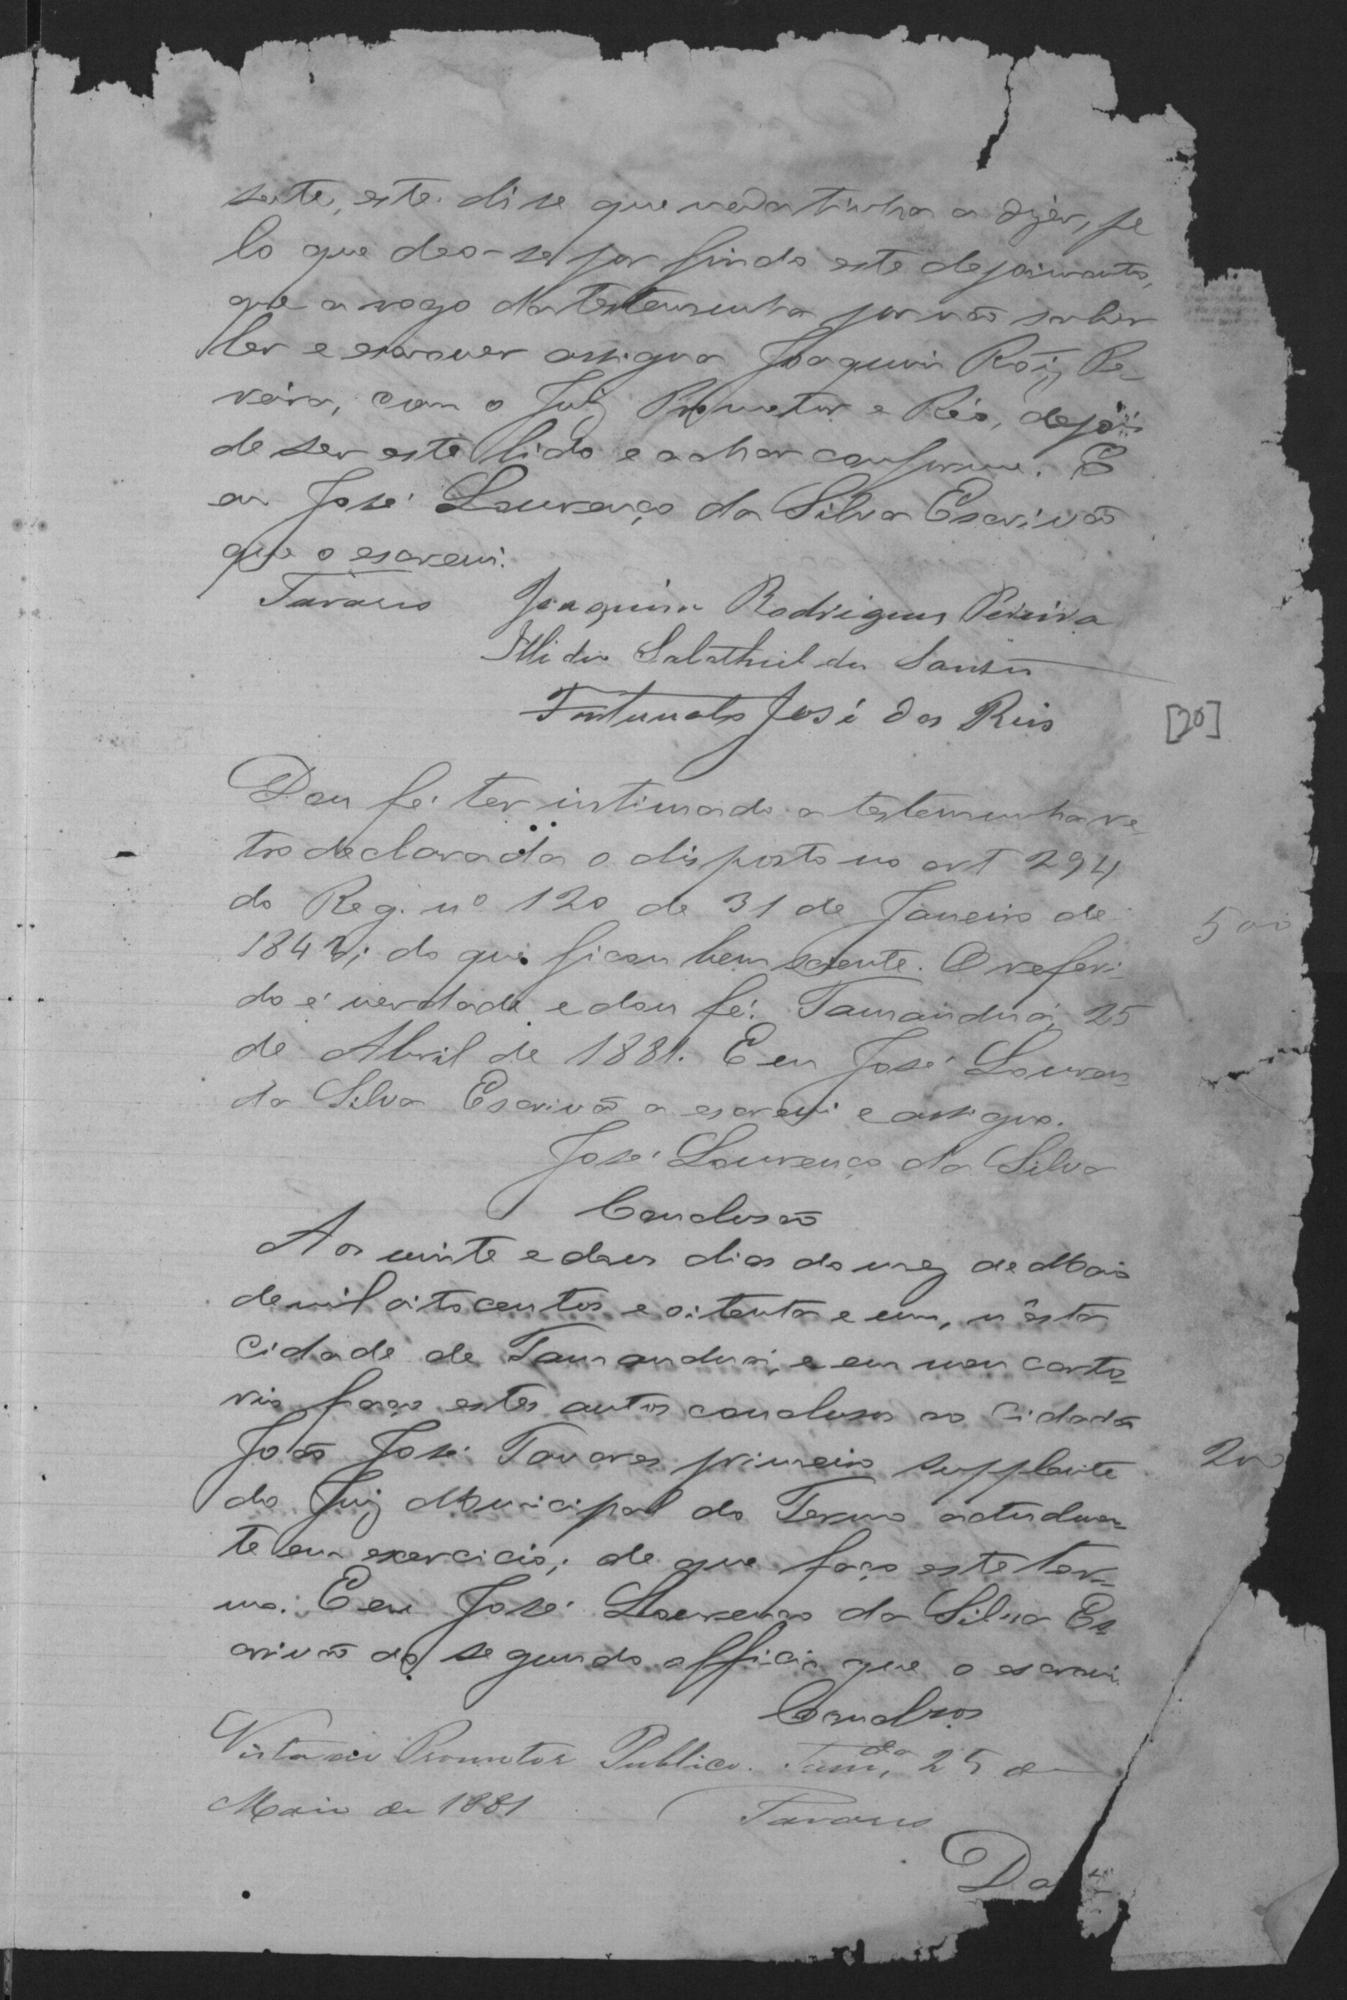 sente, este disse que nada tinha a dizer, pe
lo que deo-se por findo este depoimento,
que a rogo da testemunha por não saber
ler e escrever assigna Joaquim Roiz Pe-
reira, com o Juiz Promotor e Réo, depois
de ser este lido e achar conforme. E
eu José Lourenço da Silva Escrivão
que o escrevi.
Tavares Joaquim Rodrigues Pereira
Illidio Salathiel dos Santos
Fortunato José dos Reis
[20]
Dou fé ter intimado a testemunha re-
tro declarada o disposto no art 294
do Reg. nº 120 de 31 de Janeiro de
500
1842; do que ficou bem sciente. O referi-
do é verdade e dou fé. Tamanduá, 25
de Abril de 1881. E eu José Louren
da Silva Escrivão o escrevi e assigno.
José Lourenço da Silva
Conclusão
Aos vinte e dous dias do mez de Maio
de mil oitocentos e oitenta e um, n'esta
Cidade de Tamanduá, e em meu carto-
rio faço estes autos conclusos ao Cidadão
João José Tavares primeiro supplente
200
do Juiz Municipal do Termo actualmen-
te em exercicio; de que faço este ter-
mo. E eu José Lourenço da Silva Es-
crivão do segundo officio que o escrevi
Conclusos
Vista ao Promotor Publico. Tam.dá, 25 de
Maio de 1881
Tavares
Da